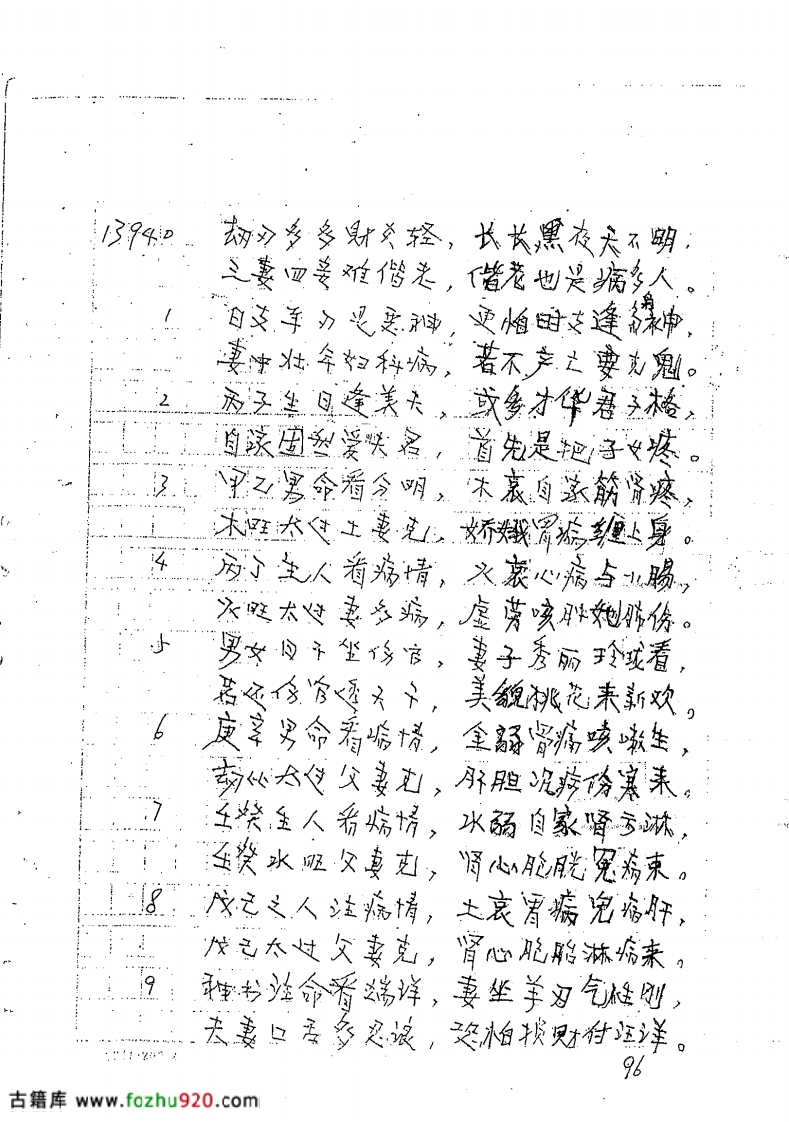 13940 劫刃多多财爻轻，长长黑夜天不明，
三妻四妾难偕老，偕老也是病多人。
1 日支羊刃是恶神，更怕时支逢偏神，
妻冲壮年妇科病，若不产亡要克
2 丙子生日逢美夫，或多才华君子格，
自家固塑爱失名，首先是把子女疼。
3 甲乙男命看分明，木衰自家筋肾疼，
木旺太过土妻克，娇娥胃病缠上身。
4 丙丁生人看病情，火衰心病与小肠，
火旺太过妻多病，虚劳咳肺她肺伤。
5 男女日下坐伤官，妻子秀丽玲珑看，
若还伤官透天干，美貌桃花来新欢。
6 庚辛男命看病情，金弱肾病咳嗽生，
劫比太过父妻克，肝胆沉病伤寒来。
7 壬癸生人看病情，水弱自家肾亏淋，
壬癸水旺父妻克，肾心胞胱冤病来。
8 戊己之人注病情，土衰胃病兔病肝，
戊己太过父妻克，肾心胞胎淋病来。
9 种书注命看端详，妻坐羊刃气性刚，
夫妻口舌多忍让，恐怕损财付汪洋。
96
古籍库 www.fozhu920.com